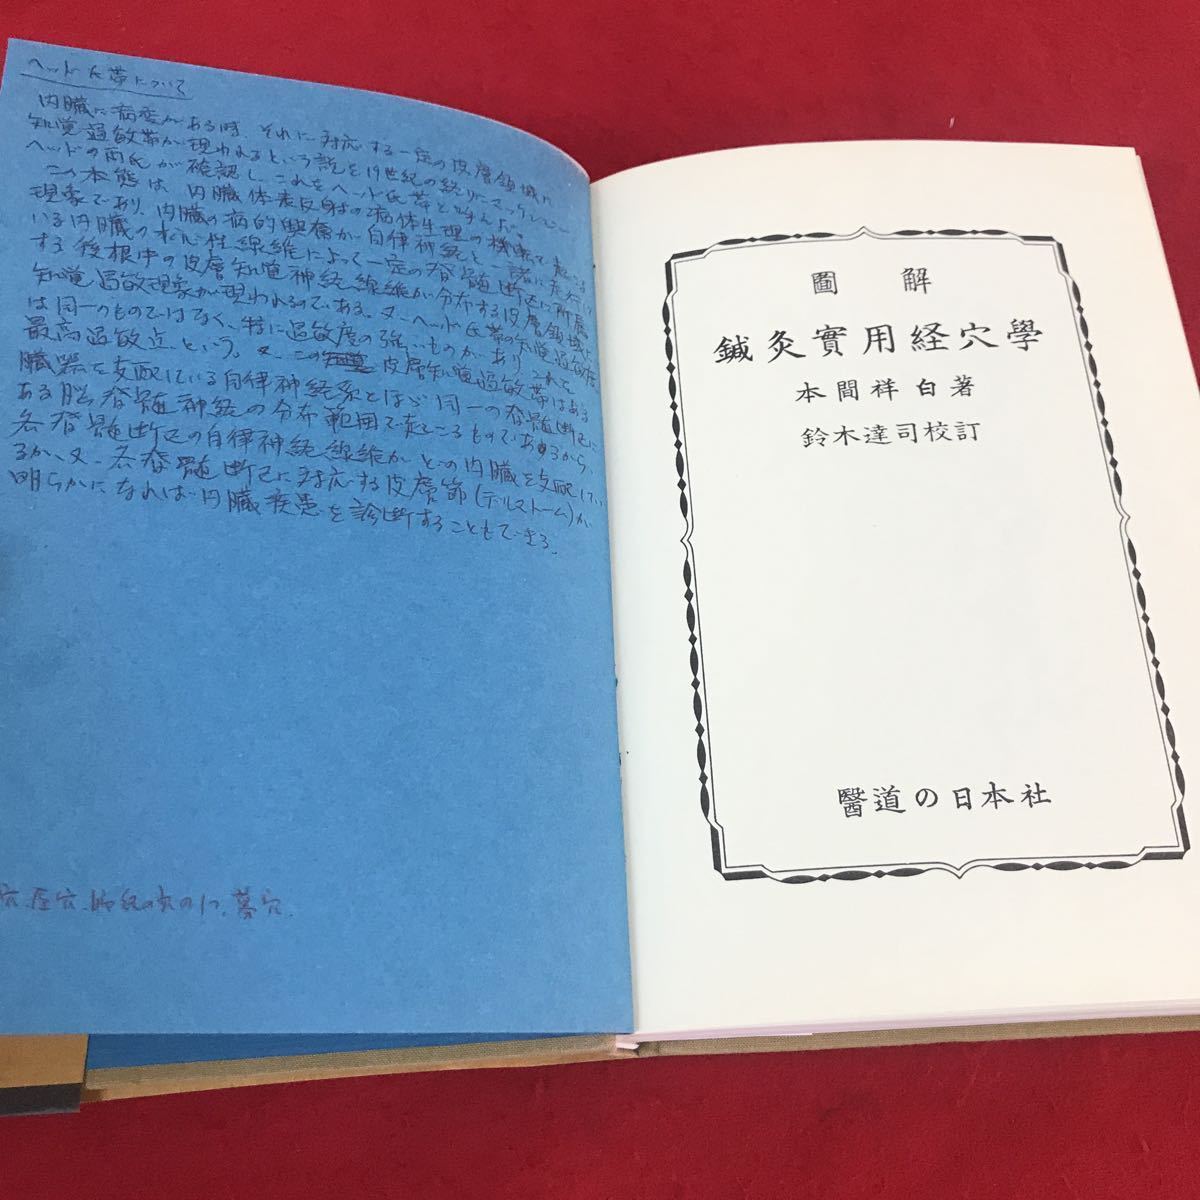 ヘッド氏帯について
内臓に病変がある時、それに対応する一定の皮膚領域に
知覚過敏帯が現われるという説を19世紀の終りにマッケンジー
ヘッドの両氏が確認し、これをヘッド氏帯と呼んだ。
この本態は、内臓体表反射の病体生理の機転で起こる
現象であり、内臓の病的興奮が自律神経と一諸に走行して
いる内臓の求心性線維によって一定の脊髄断区に所属
する後根中の皮膚知覚神経線維が分布する皮膚領域に
知覚過敏現象が現われるのである。又、ヘッド氏帯の知覚過敏度
は同一のものではなく、特に過敏度の強いものがあり、これを
最高過敏点という。又、この皮膚知覚過敏帯はある
臓器を支配している自律神経系とほゞ同一の脊髄断区に
ある脳脊髄神経の分布範囲で起こるものであるから、
各脊髄断区の自律神経線維がどの内臓を支配してい
るか、又、各脊髄断区に対応する皮膚節(デルマトーム)が
明らかになれば内臓疾患を診断することもできる。
圖解
鍼灸實用経穴學
本間祥白著
鈴木達司校訂
醫道の日本社